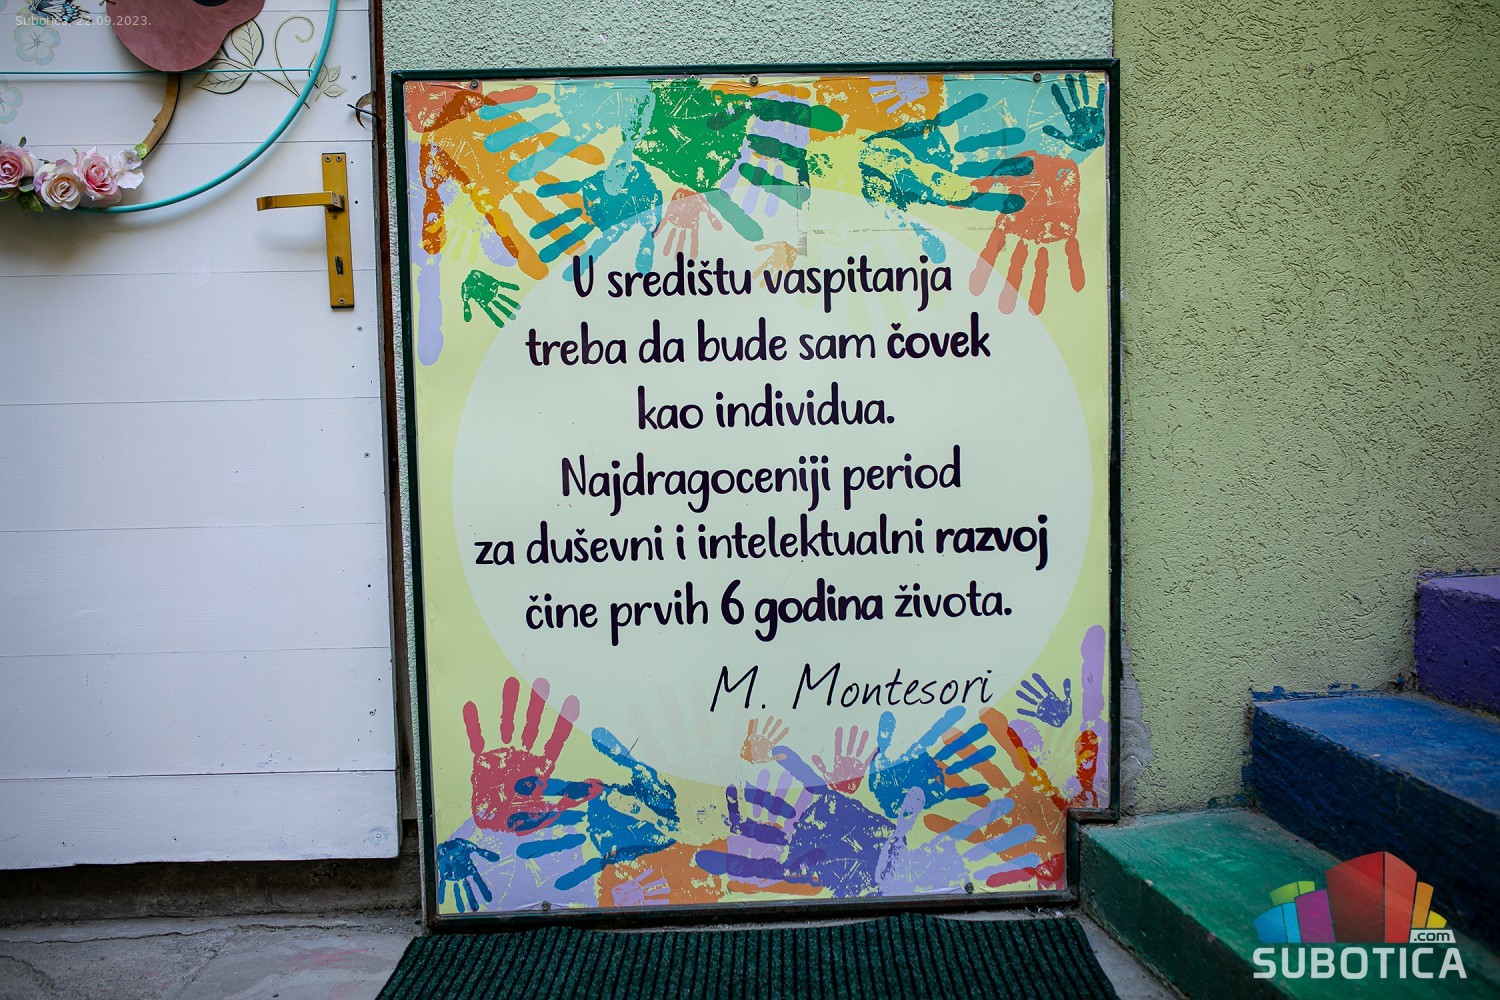 Subotica, 22.09.2023.
U središtu vaspitanja
treba da bude sam čovek
kao individua.
Najdragoceniji period
za duševni i intelektualni razvoj
čine prvih 6 godina života.
M. Montesori
.com
SUBOTICA